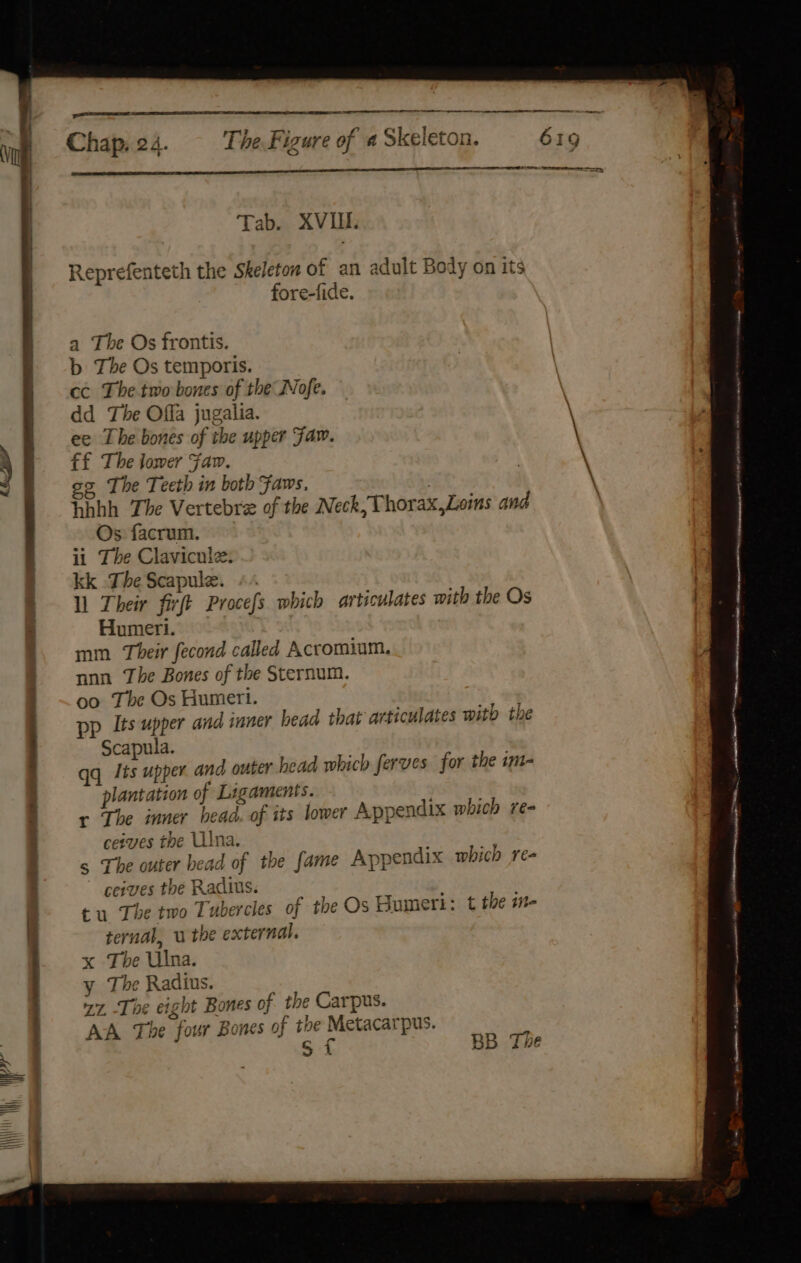 Chap. 24. The Figure of a Skeleton. 619
Tab. XVIII.
Repreſenteth the Skeleton of an adult Body on its
fore-ſide.
a The Os frontis.
b The Os temporis.
cc The two bones of the Noſe.
dd The Oſſa jugalia.
ee The bones of the upper Jaw.
ff The lower Jaw.
gg The Teeth in both Jaws.
hhhh The Vertebræ of the Neck, Thorax, Loins and
Os ſacrum.
ii The Claviculæ.
kk The Scapulæ.
ll Their firſt Proceſs which articulates with the Os
Humeri.
mm Their ſecond called Acromium.
nnn The Bones of the Sternum.
oo The Os Humeri.
pp Its upper and inner head that articulates with the
Scapula.
qq Its upper and outer head which ſerves for the im-
plantation of Ligaments.
r The inner head of its lower Appendix which re-
ceives the Ulna.
s The outer head of the ſame Appendix which re-
ceives the Radius.
tu The two Tubercles of the Os Humeri: t the in-
ternal, u the external.
x The Ulna.
y The Radius.
zz The eight Bones of the Carpus.
AA The four Bones of the Metacarpus.
S ſ BB The